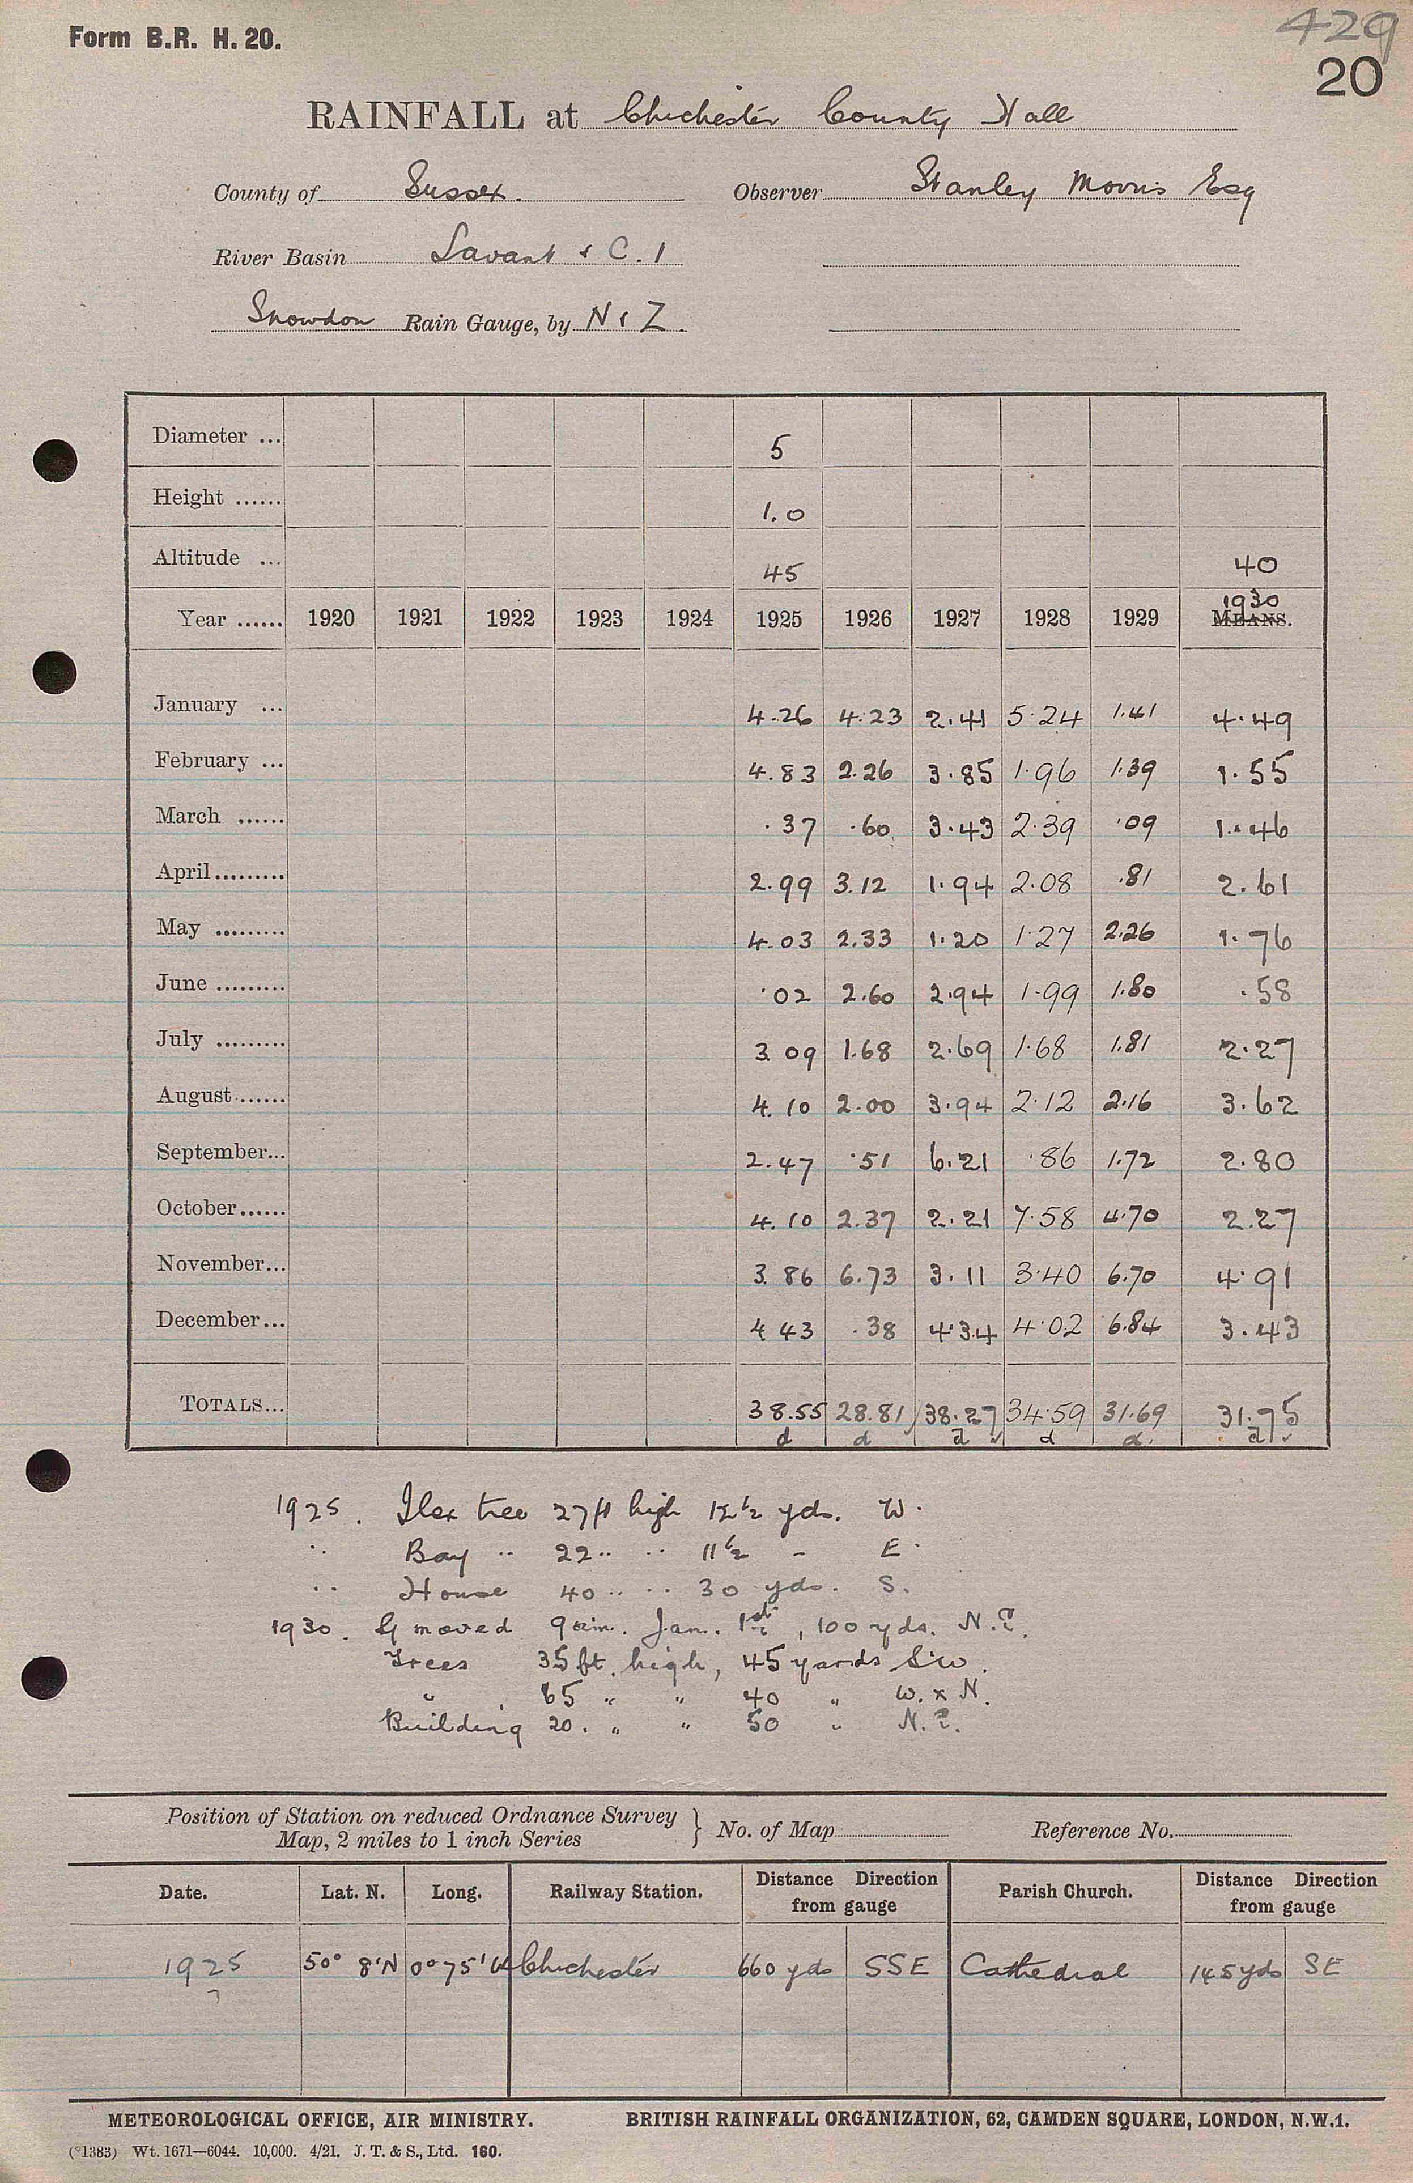 429
Form B.R. H. 20.
20
RAINFALL at Chichester County Hall
County of Sussex. Observer Stanley Morris Esq
River Basin Lavant & C. 1
Snowdon Rain Gauge, by N & Z.
Diameter ... 5
Height ...... 1.0
Altitude ... 45 40
Year ...... 1920 1921 1922 1923 1924 1925 1926 1927 1928 1929 1930 MEANS.
January ... 4.26 4.23 2.41 5.24 1.41 4.49
February ... 4.83 2.26 3.85 1.96 1.39 1.55
March ...... .37 .60 3.43 2.39 .09 1.46
April ......... 2.99 3.12 1.94 2.08 .81 2.61
May ......... 4.03 2.33 1.20 1.27 2.26 1.76
June ......... .02 2.60 2.94 1.99 1.80 .58
July ......... 3.09 1.68 2.69 1.68 1.81 2.27
August ...... 4.10 2.00 3.94 2.12 2.16 3.62
September... 2.47 .51 6.21 .86 1.72 2.80
October...... 4.10 2.37 2.21 7.58 4.70 2.27
November... 3.86 6.73 3.11 3.40 6.70 4.91
December... 4.43 .38 4.34 4.02 6.84 3.43
TOTALS... 38.55 28.81 38.27 34.59 31.69 31.75
d d d d d. d
1925. Ilex tree 27ft high 12½ yds. W.
" Bay " 22 " " 11½ " E.
" House 40 " " 30 yds. S.
1930. G moved 9am. Jan. 1st, 100 yds. N.E.
Trees 35 ft. high, 45 yards SW.
" 65 " " 40 " W. x N.
Building 20. " " 50 " N.E.
Position of Station on reduced Ordnance Survey Map, 2 miles to 1 inch Series } No. of Map Reference No.
Date. Lat. N. Long. Railway Station. Distance Direction from gauge Parish Church. Distance Direction from gauge
1925 50° 8'N 0° 75' W Chichester 660 yds SSE Cathedral 145 yds SE
METEOROLOGICAL OFFICE, AIR MINISTRY. BRITISH RAINFALL ORGANIZATION, 62, CAMDEN SQUARE, LONDON, N.W.1.
(*1383) Wt. 1671—6044. 10,000. 4/21. J. T. & S., Ltd. 160.